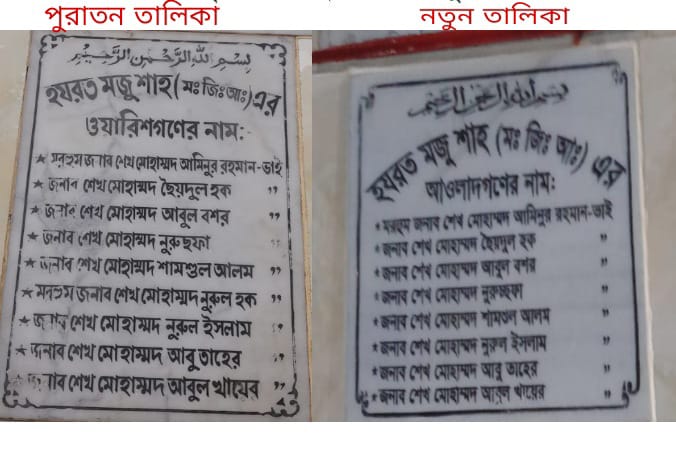 পুরাতন তালিকা
بسم الله الرحمن الرحيم
হযরত মজু শাহ (মঃ জিঃ আঃ) এর
ওয়ারিশগণের নাম:
★ মরহুম জনাব শেখ মোহাম্মদ আমিনুর রহমান-ভাই
★ জনাব শেখ মোহাম্মদ ছৈয়দুল হক ,,
★ জনাব শেখ মোহাম্মদ আবুল বশর ,,
★ জনাব শেখ মোহাম্মদ নুরুছফা ,,
★ জনাব শেখ মোহাম্মদ শামশুল আলম ,,
★ মরহুম জনাব শেখ মোহাম্মদ নুরুল হক ,,
★ জনাব শেখ মোহাম্মদ নুরুল ইসলাম ,,
★ জনাব শেখ মোহাম্মদ আবু তাহের ,,
★ জনাব শেখ মোহাম্মদ আবুল খায়ের ,,
নতুন তালিকা
بسم الله الرحمن الرحيم
হযরত মজু শাহ (মঃ জিঃ আঃ) এর
আওলাদগণের নাম:
* মরহুম জনাব শেখ মোহাম্মদ আমিনুর রহমান-ভাই
* জনাব শেখ মোহাম্মদ ছৈয়দুল হক "
* জনাব শেখ মোহাম্মদ আবুল বশর "
* জনাব শেখ মোহাম্মদ নুরুচ্ছফা "
* জনাব শেখ মোহাম্মদ শামশুল আলম "
* জনাব শেখ মোহাম্মদ নুরুল ইসলাম "
* জনাব শেখ মোহাম্মদ আবু তাহের "
* জনাব শেখ মোহাম্মদ আবুল খায়ের "